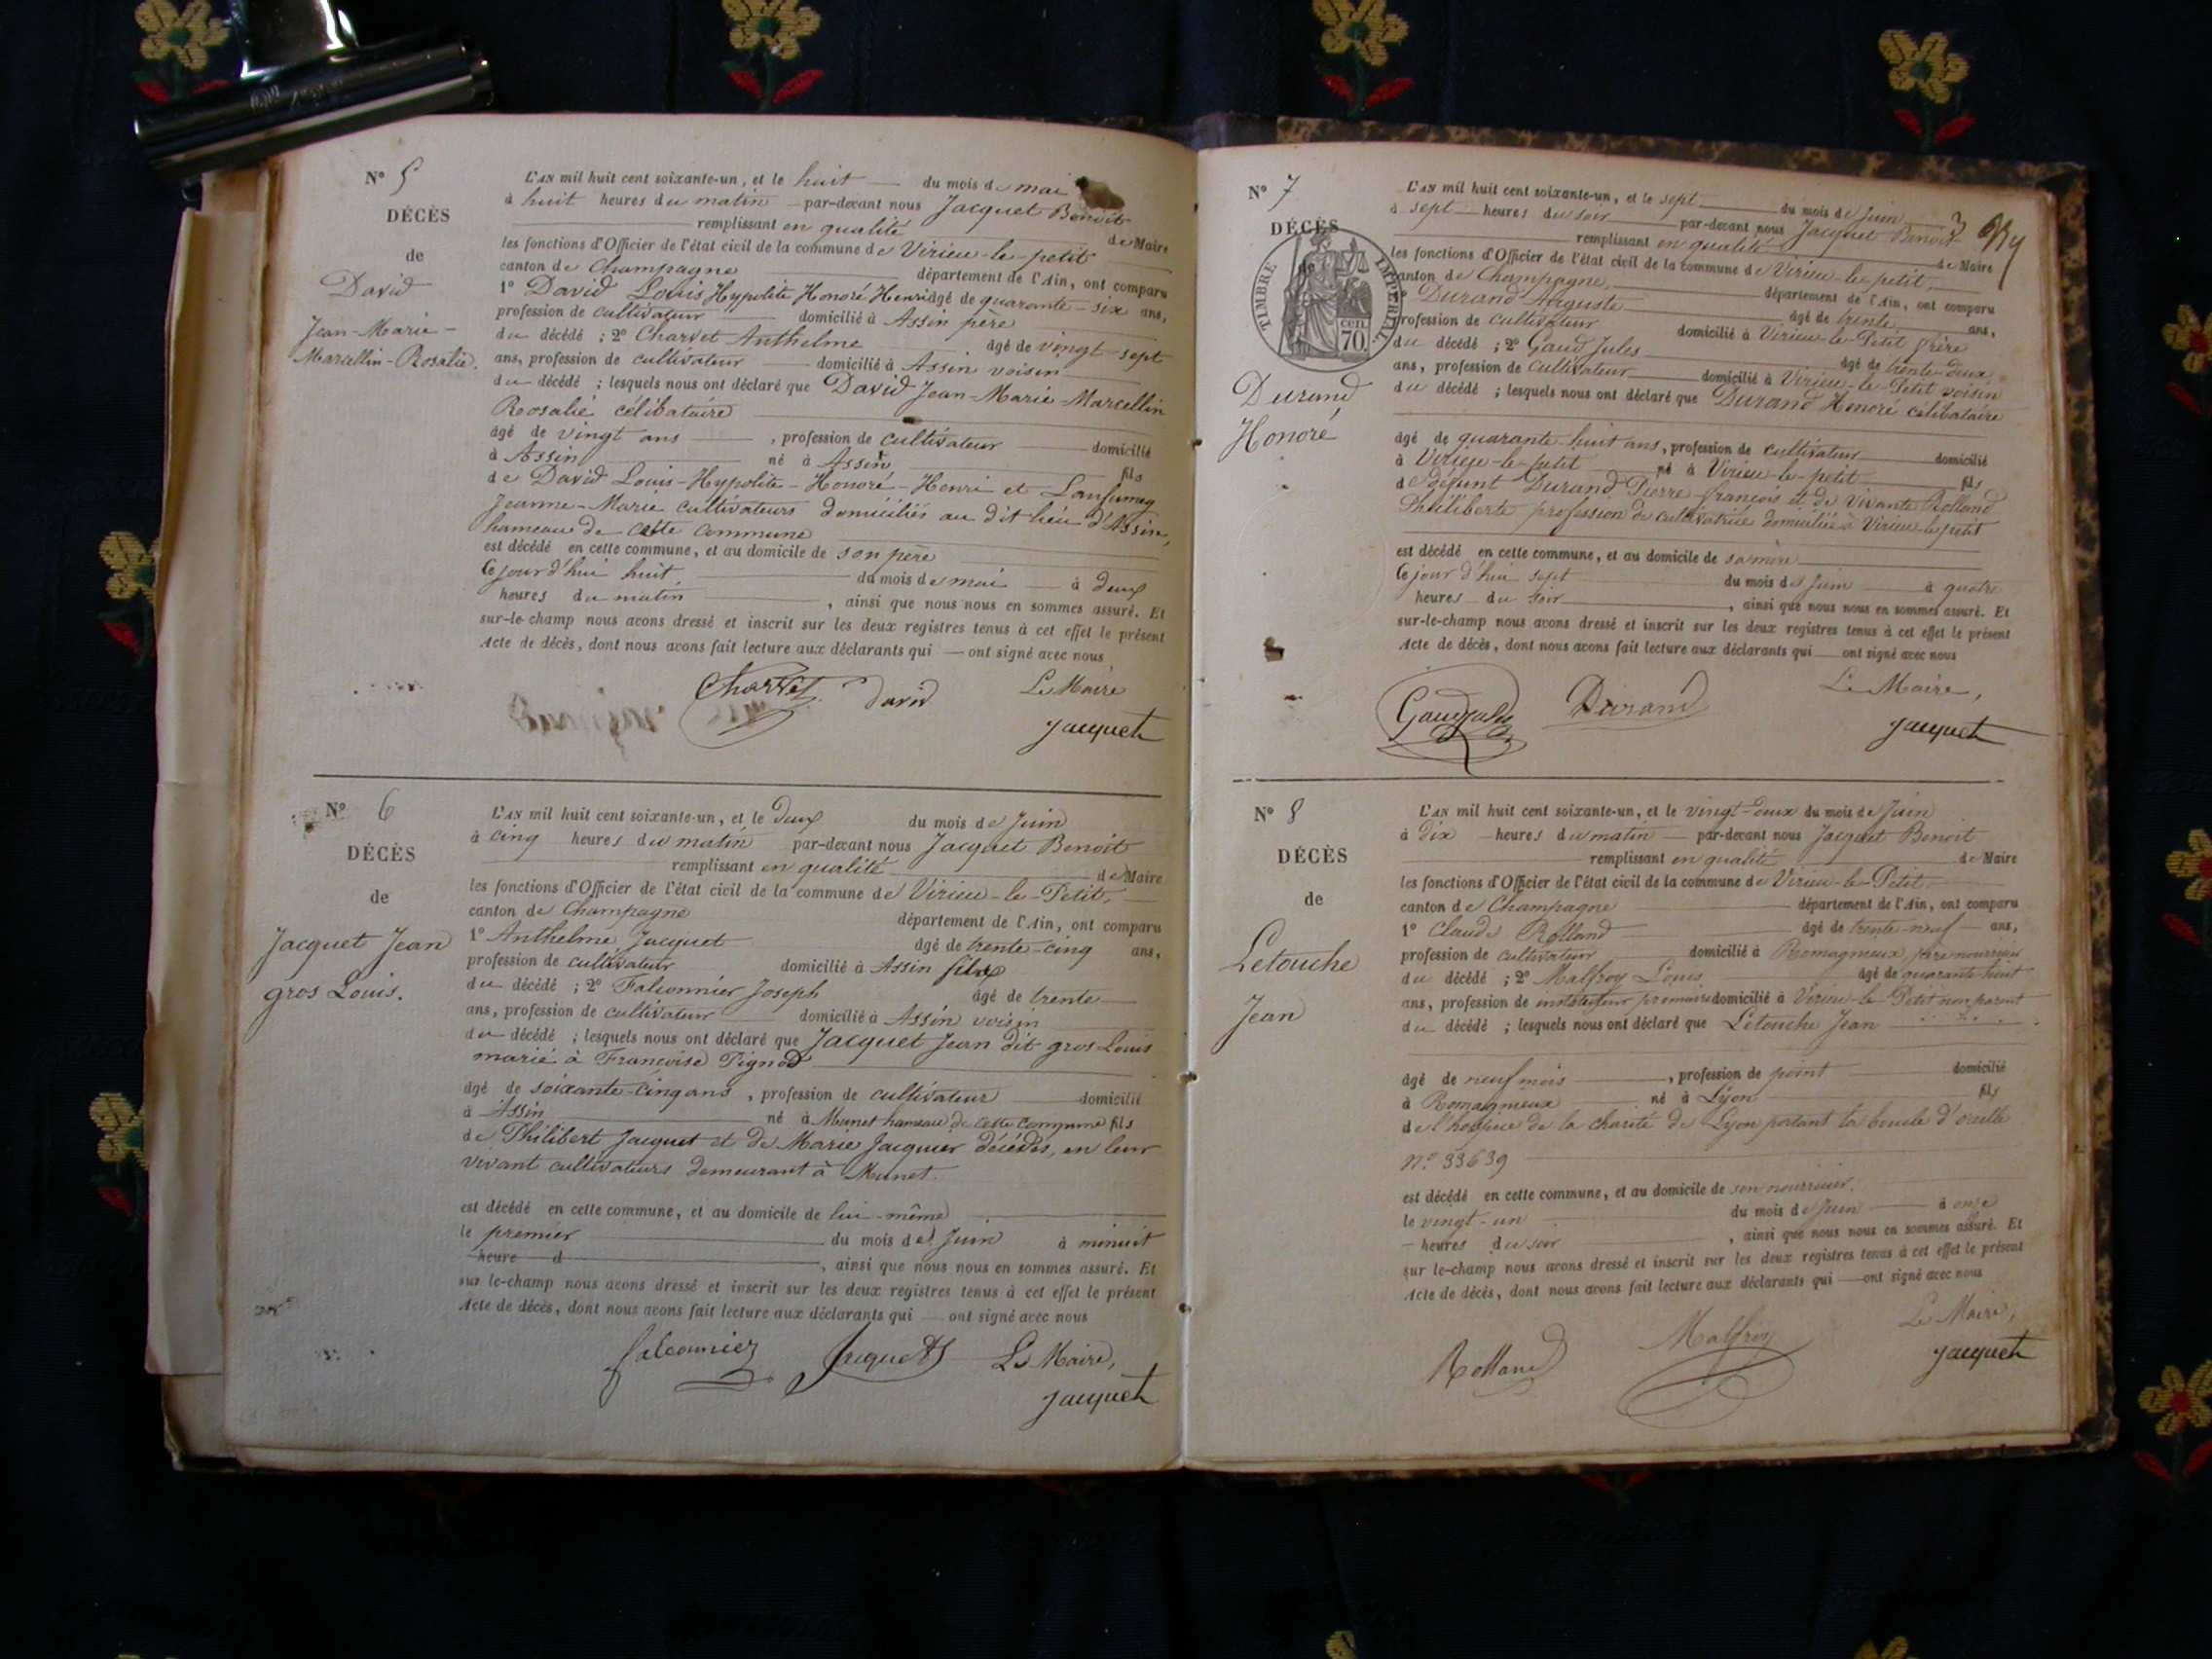 N° 5
DÉCÈS
de
David
Jean-Marie-
Marcellin-Rosalie.
L'AN mil huit cent soixante-un, et le huit du mois de mai
à huit heures du matin par-devant nous Jacquet Benoit
remplissant en qualité de Maire
les fonctions d'Officier de l'état civil de la commune de Virieu-le-petit
canton de Champagne département de l'Ain, ont comparu
1° David Louis Hypolite Honoré Henri âgé de quarante-six ans,
profession de cultivateur domicilié à Assin père
du décédé ; 2° Charvet Anthelme âgé de vingt-sept
ans, profession de cultivateur domicilié à Assin voisin
du décédé ; lesquels nous ont déclaré que David Jean-Marie-Marcellin
Rosalie célibataire
âgé de vingt ans, profession de cultivateur domicilié
à Assin né à Assin fils
de David Louis-Hypolite-Honoré-Henri et
Jeanne-Marie cultivateurs domiciliés au dit lieu d'Assin,
hameau de cette commune
est décédé en cette commune, et au domicile de son père
Ce jour d'hui huit du mois de mai à deux
heures du matin, ainsi que nous nous en sommes assuré. Et
sur-le-champ nous avons dressé et inscrit sur les deux registres tenus à cet effet le présent
Acte de décès, dont nous avons fait lecture aux déclarants qui ont signé avec nous
Charvet David Le Maire
Jacquet
N° 6
DÉCÈS
de
Jacquet Jean
gros Louis.
L'AN mil huit cent soixante-un, et le deux du mois de Juin
à cinq heures du matin par-devant nous Jacquet Benoit
remplissant en qualité de Maire
les fonctions d'Officier de l'état civil de la commune de Virieu-le-Petit,
canton de Champagne département de l'Ain, ont comparu
1° Anthelme Jacquet âgé de trente-cinq ans,
profession de cultivateur domicilié à Assin fils
du décédé ; 2° Falconnier Joseph âgé de trente
ans, profession de cultivateur domicilié à Assin voisin
du décédé ; lesquels nous ont déclaré que Jacquet Jean dit gros Louis
marié à Françoise Pignod
âgé de soixante-cinq ans, profession de cultivateur domicilié
à Assin né à Munet hameau de cette commune fils
de Philibert Jacquet et de Marie Jacquier décédés, en leur
vivant cultivateurs demeurant à Munet.
est décédé en cette commune, et au domicile de lui-même
le premier du mois de Juin à minuit
heure d, ainsi que nous nous en sommes assuré. Et
sur le-champ nous avons dressé et inscrit sur les deux registres tenus à cet effet le présent
Acte de décès, dont nous avons fait lecture aux déclarants qui ont signé avec nous
falconnier Jacquet Le Maire,
Jacquet
N° 7
DÉCÈS
TIMBRE IMPÉRIAL
70 CEN.
Durand
Honoré
L'AN mil huit cent soixante-un, et le sept du mois de Juin
à sept heures du soir par-devant nous Jacquet Benoit
remplissant en qualité de Maire
les fonctions d'Officier de l'état civil de la commune de Virieu-le-petit,
canton de Champagne, département de l'Ain, ont comparu
Durand Auguste âgé de trente ans,
profession de cultivateur domicilié à Virieu-le-Petit frère
du décédé ; 2° Gaud Jules âgé de trente-deux
ans, profession de cultivateur domicilié à Virieu-le-Petit voisin
du décédé ; lesquels nous ont déclaré que Durand Honoré célibataire
âgé de quarante-huit ans, profession de cultivateur domicilié
à Virieu-le-petit né à Virieu-le-petit fils
de défunt Durand Pierre-françois et de vivante Rolland
Philiberte profession de cultivatrice domiciliée à Virieu-le-petit
est décédé en cette commune, et au domicile de sa mère
Ce jour d'hui sept du mois de Juin à quatre
heures du soir, ainsi que nous nous en sommes assuré. Et
sur-le-champ nous avons dressé et inscrit sur les deux registres tenus à cet effet le présent
Acte de décès, dont nous avons fait lecture aux déclarants qui ont signé avec nous
Gaud Jules Durand Le Maire,
Jacquet
N° 8
DÉCÈS
de
Letouche
Jean
L'AN mil huit cent soixante-un, et le vingt-deux du mois de Juin
à dix heures du matin par-devant nous Jacquet Benoit
remplissant en qualité de Maire
les fonctions d'Officier de l'état civil de la commune de Virieu-le-Petit
canton de Champagne département de l'Ain, ont comparu
1° Claude Rolland âgé de trente-neuf ans,
profession de cultivateur domicilié à Romagnieux père nourricier
du décédé ; 2° Malfroy Louis âgé de quarante-huit
ans, profession de instituteur primaire domicilié à Virieu-le-Petit non parent
du décédé ; lesquels nous ont déclaré que Letouche Jean
âgé de neuf mois, profession de point domicilié
à Romagnieux né à Lyon fils
de l'hospice de la charité de Lyon portant la boucle d'oreille
N° 33639
est décédé en cette commune, et au domicile de son nourricier.
le vingt-un du mois de Juin à onze
heures du soir, ainsi que nous nous en sommes assuré. Et
sur le-champ nous avons dressé et inscrit sur les deux registres tenus à cet effet le présent
Acte de décès, dont nous avons fait lecture aux déclarants qui ont signé avec nous
Rolland Malfroy Le Maire,
Jacquet